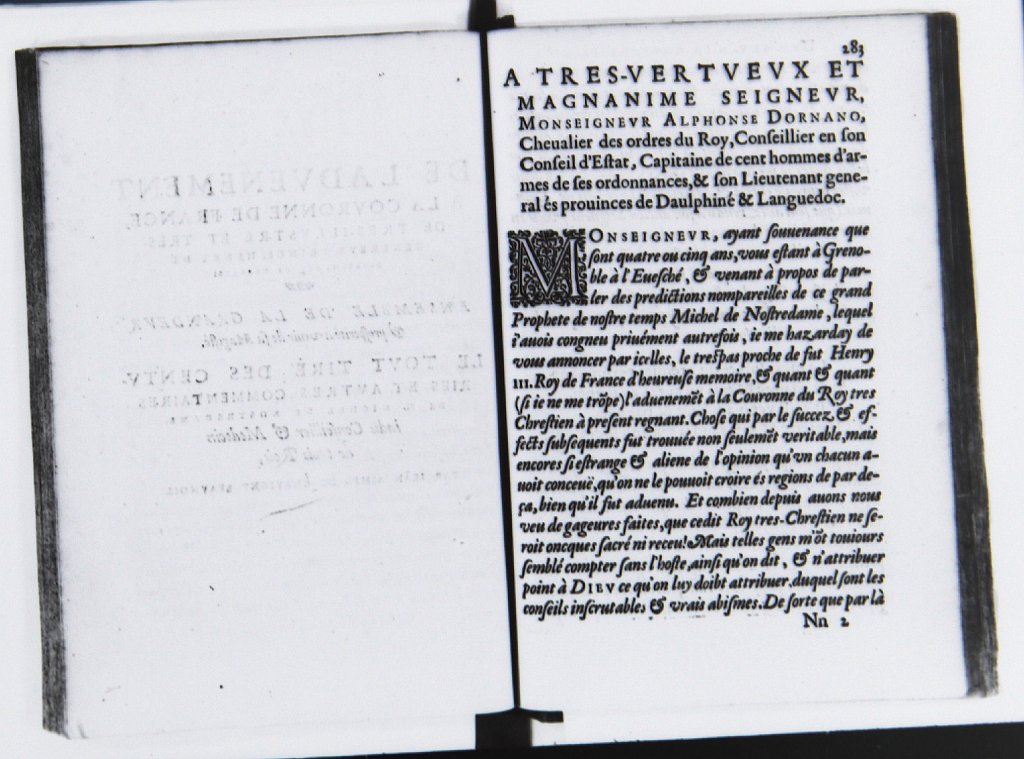 283
A TRES-VERTVEVX ET
MAGNANIME SEIGNEVR,
MONSEIGNEVR ALPHONSE DORNANO,
Cheualier des ordres du Roy, Conſeillier en ſon
Conſeil d'Eſtat, Capitaine de cent hommes d'ar-
mes de ſes ordonnances, & ſon Lieutenant gene-
ral és prouinces de Daulphiné & Languedoc.
MONSEIGNEVR, ayant ſouuenance que
ſont quatre ou cinq ans, vous eſtant à Greno-
ble à l'Eueſché, & venant à propos de par-
ler des predictions nompareilles de ce grand
Prophete de noſtre temps Michel de Noſtredame, lequel
i'auois congneu priuément autrefois, ie me hazarday de
vous annoncer par icelles, le treſpas proche de fut Henry
III. Roy de France d'heureuſe memoire, & quant & quant
(ſi ie ne me trõpe) l'aduenemẽt à la Couronne du Roy tres
Chreſtien à preſent regnant. Choſe qui par le ſuccez, & ef-
fects ſubſequents fut trouuée non ſeulemẽt veritable, mais
encores ſi eſtrange & aliene de l'opinion qu'vn chacun a-
uoit conceuë, qu'on ne le pouuoit croire és regions de par de-
ça, bien qu'il fut aduenu. Et combien depuis auons nous
veu de gageures faites, que cedit Roy tres-Chreſtien ne ſe-
roit oncques ſacré ni receu! Mais telles gens m'õt touiours
ſemblé compter ſans l'hoſte, ainſi qu'on dit, & n'attribuer
point à DIEV ce qu'on luy doibt attribuer, duquel ſont les
conſeils inſcrutables & vrais abiſmes. De ſorte que par là
Nn 2
DE L'ADVENEMENT
A LA COVRONNE DE FRANCE,
DE TRES-ILLVSTRE ET TRES
ENSEMBLE DE LA GRANDEVR
LE TOVT TIRÉ DES CENTV-
RIES ET AVTRES COMMENTAIRES